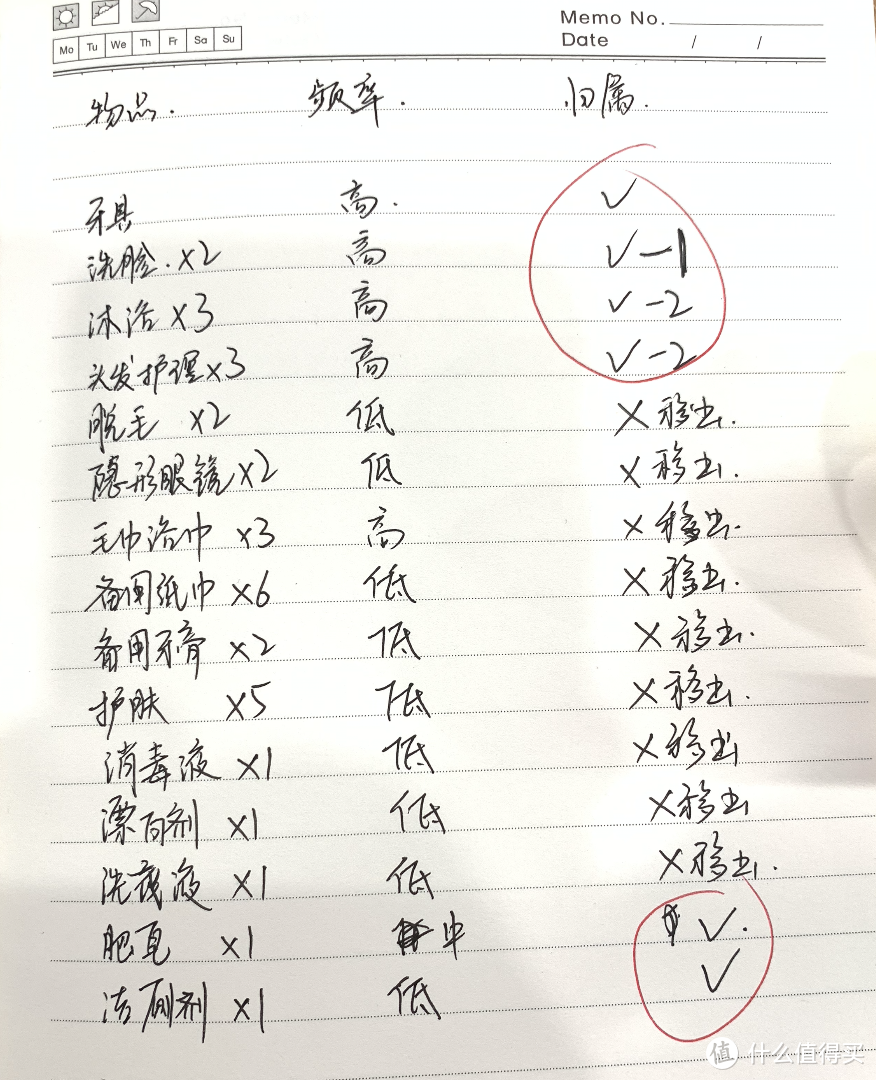 Memo No.
Mo Tu We Th Fr Sa Su
Date / /
物品. 频率. 归属.
牙具 高. ✓
洗脸. ×2 高 ✓-1
沐浴 ×3 高 ✓-2
头发护理×3 高 ✓-2
脱毛 ×2 低 ×移出.
隐形眼镜×2 低 ×移出.
毛巾浴巾 ×3 高 ×移出.
备用纸巾 ×6 低 ×移出.
备用牙膏 ×2 低 ×移出.
护肤 ×5 低 ×移出.
消毒液 ×1 低 ×移出
漂白剂 ×1 低 ×移出
洗液 ×1 低 ×移出.
肥皂 ×1 中 ✓.
洁厕剂 ×1 低 ✓
值 什么值得买